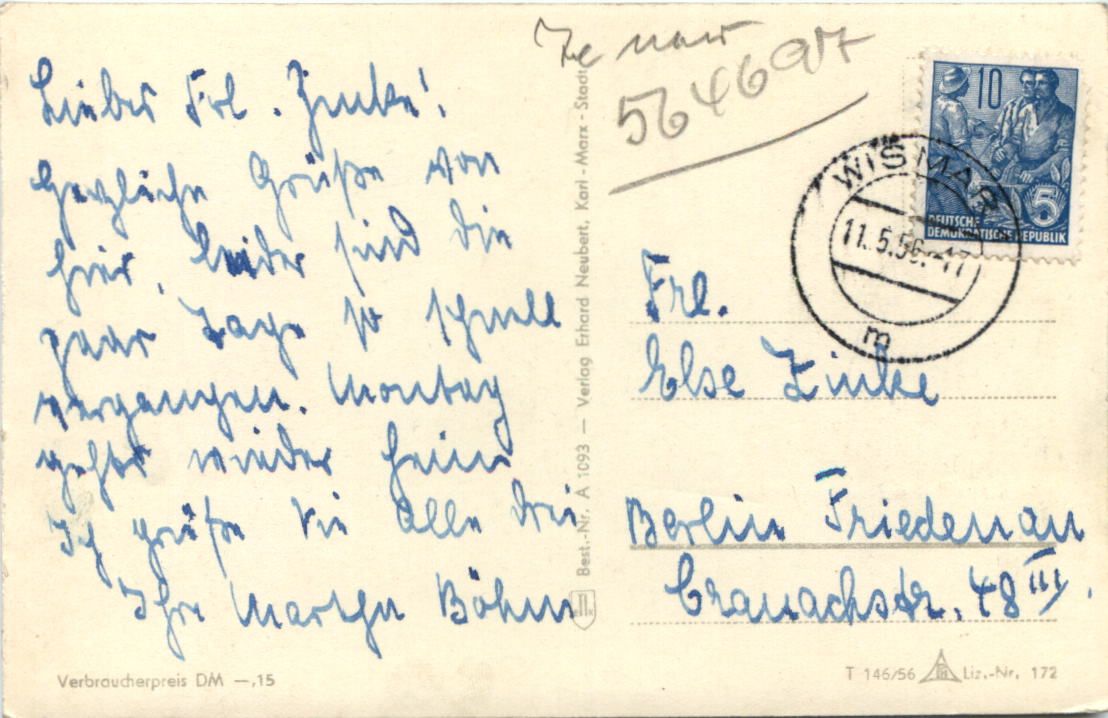 Liebes Frl. Zinke!
Herzliche Grüße von
hier, leider sind die
paar Tage so schnell
vergangen. Montag
gehts wieder heim
Ich grüße Sie alle drei
Ihre Martha Böhm
Verbraucherpreis DM —,15
Best.-Nr. A 1093 — Verlag Erhard Neubert, Karl-Marx-Stadt
564697
10
5
DEUTSCHE
DEMOKRATISCHE REPUBLIK
WISMAR
11.5.56.-17
m
Frl.
Else Zinke
Berlin Friedenau
Cranachstr. 48 III
T 146/56 Liz.-Nr. 172